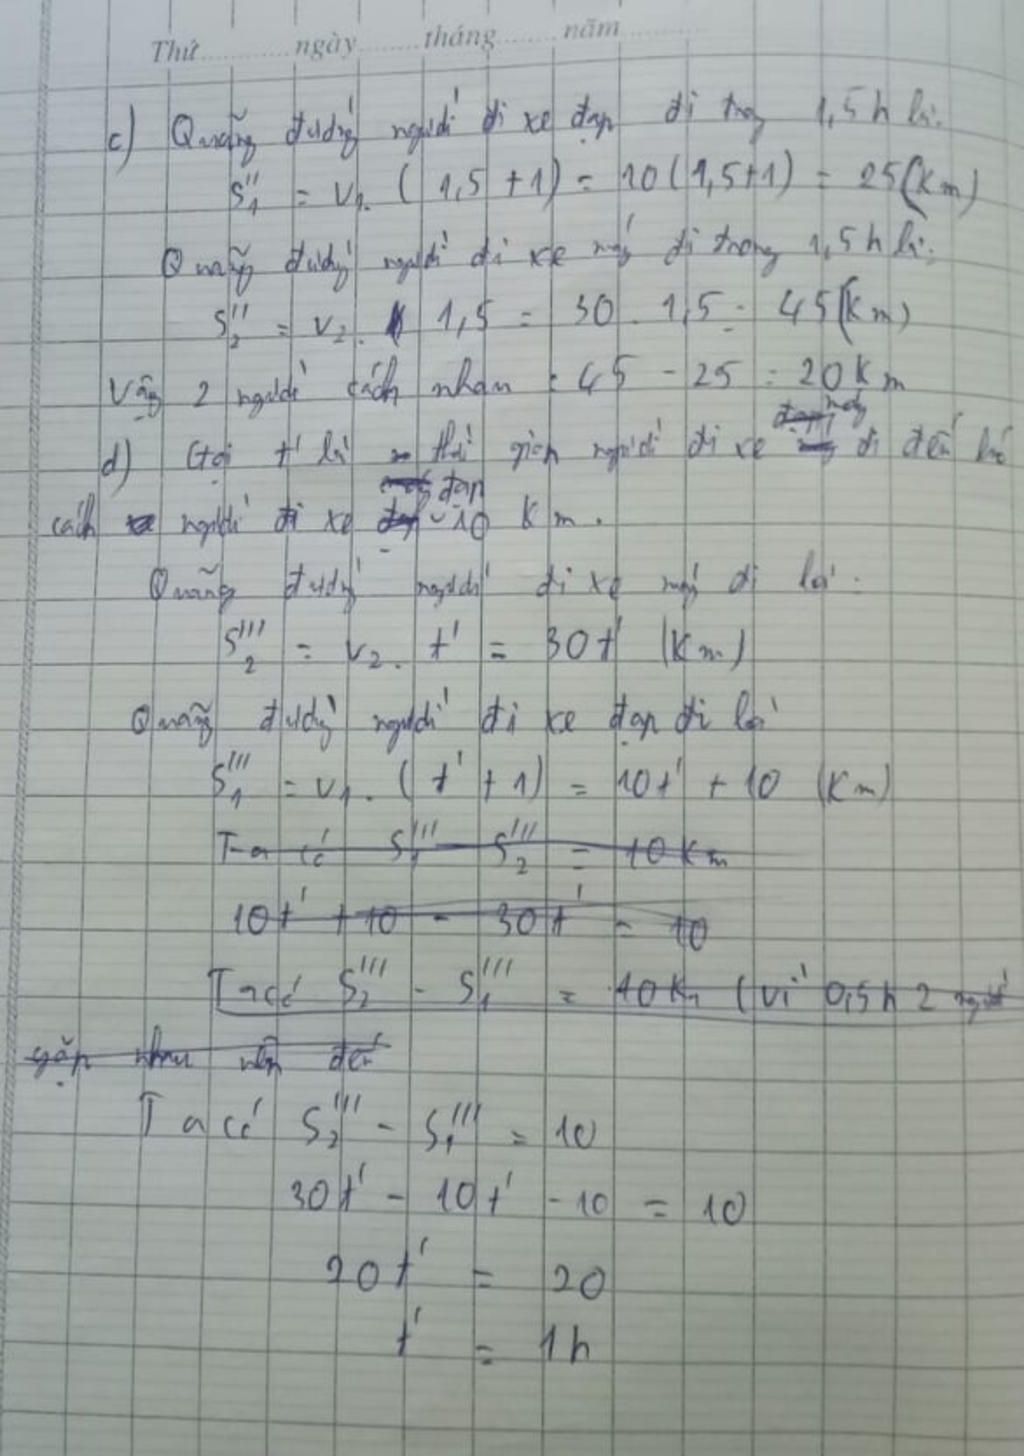 Thứ ngày tháng năm
c) Quãng đường người đi xe đạp đi trog 1,5h là:
S₁'' = v₁. ( 1,5 + 1) = 10(1,5+1) = 25(km)
Quãng đường người đi xe máy đi trong 1,5h là:
S₂'' = v₂. 1,5 = 30. 1,5 = 45(km)
Vậy 2 người cách nhau : 45 - 25 = 20 km
d) Gọi t' là thời gian người đi xe máy đi đến lúc
cách người đi xe đạp 10 km.
Quãng đường người đi xe máy đi là:
S₂''' = v₂. t' = 30t' (km)
Quãng đường người đi xe đạp đi là
S₁''' = v₁. ( t' + 1) = 10t' + 10 (km)
Ta có S₁''' - S₂''' = 10 km
10t' + 10 - 30t' = 10
Ta có S₂''' - S₁''' = 10km (vì 0,5h 2 người
gặp nhau nên đến
Ta có S₂''' - S₁''' = 10
30t' - 10t' - 10 = 10
20t' = 20
t' = 1h